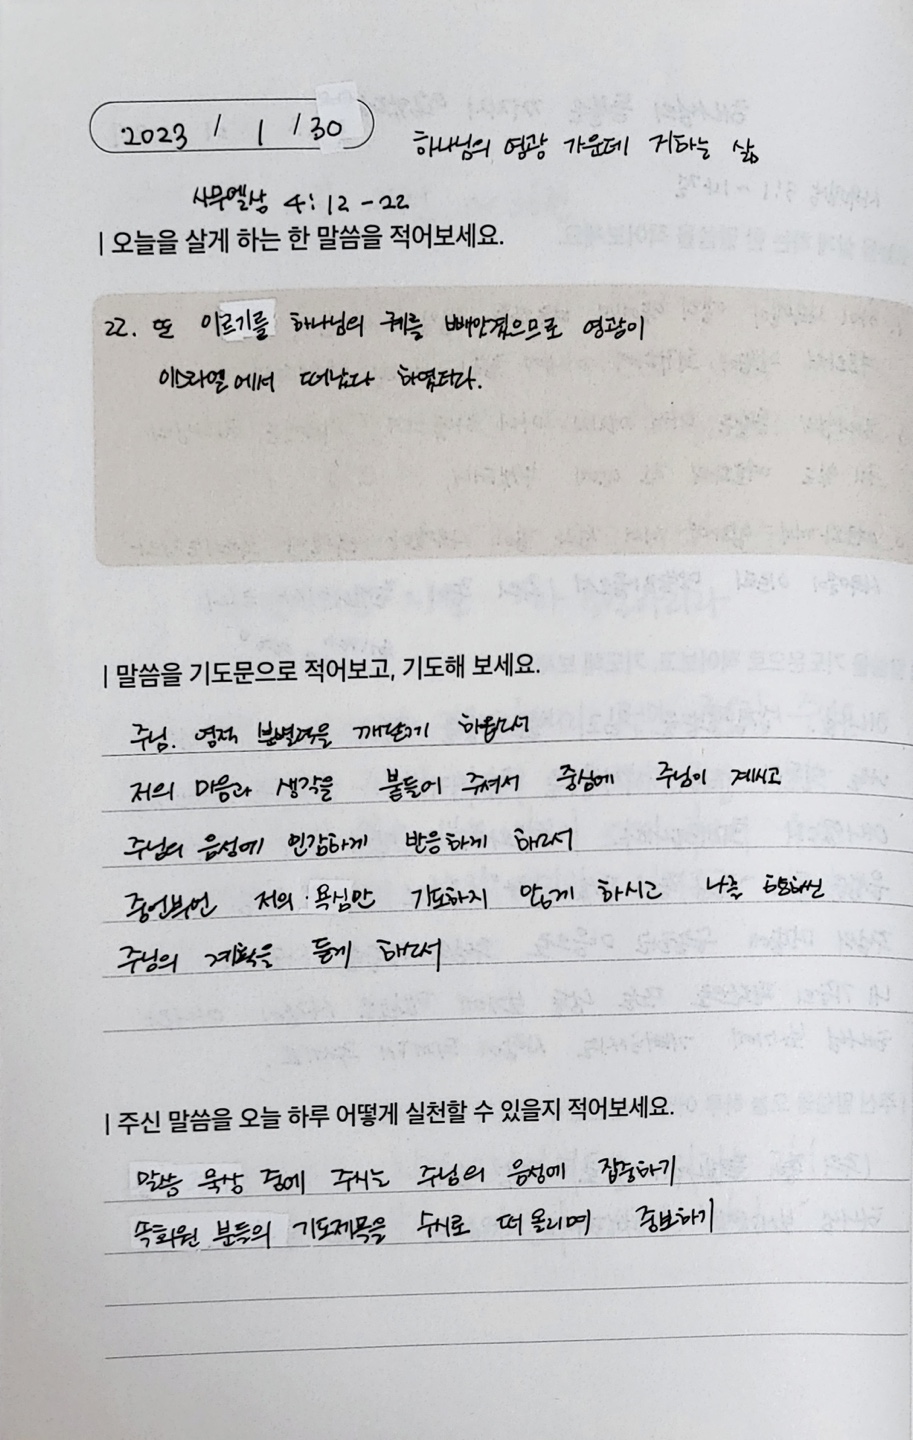 2023 / 1 / 30
하나님의 영광 가운데 거하는 삶
사무엘상 4:12-22
| 오늘을 살게 하는 한 말씀을 적어보세요.
22. 또 이르기를 하나님의 궤를 빼앗겼으므로 영광이
이스라엘에서 떠났다 하였더라.
| 말씀을 기도문으로 적어보고, 기도해 보세요.
주님. 영적 분별력을 깨닫게 하옵소서
저의 마음과 생각을 붙들어 주셔서 중심에 주님이 계시고
주님의 음성에 민감하게 반응하게 하소서
중언부언 저의 욕심만 기도하지 않게 하시고 나를 향하신
주님의 계획을 듣게 하소서
| 주신 말씀을 오늘 하루 어떻게 실천할 수 있을지 적어보세요.
말씀 묵상 중에 주시는 주님의 음성에 집중하기
속회원 분들의 기도제목을 수시로 떠올리며 중보하기